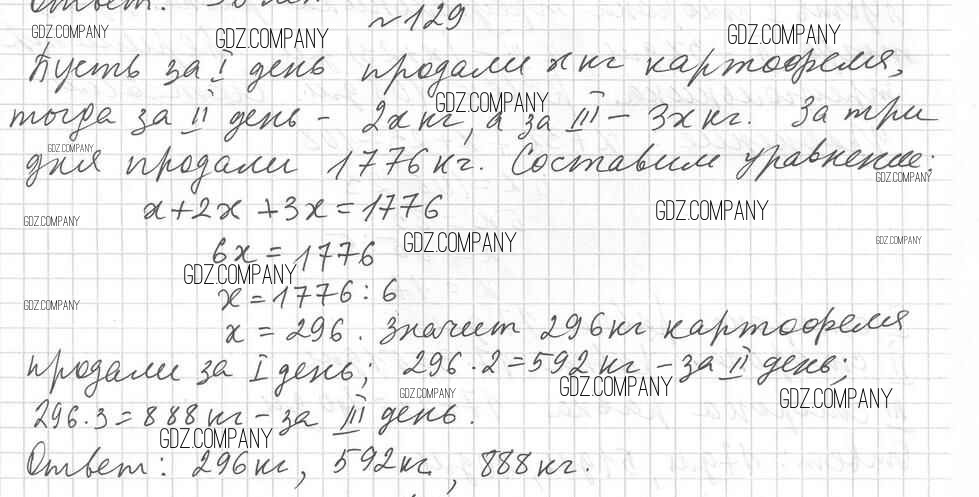 Ответ:
№129
GDZ.COMPANY GDZ.COMPANY GDZ.COMPANY
Пусть за I день продали x кг картофеля,
GDZ.COMPANY
тогда за II день - 2x кг, а за III - 3x кг. За три
GDZ.COMPANY
дня продали 1776 кг. Составим уравнение:
GDZ.COMPANY
x+2x+3x=1776
GDZ.COMPANY GDZ.COMPANY
6x=1776
GDZ.COMPANY GDZ.COMPANY
GDZ.COMPANY
x=1776:6
GDZ.COMPANY
x=296. Значит 296 кг картофеля
продали за I день; 296·2=592 кг - за II день;
GDZ.COMPANY GDZ.COMPANY GDZ.COMPANY
296·3=888 кг - за III день.
GDZ.COMPANY
Ответ: 296 кг, 592 кг, 888 кг.